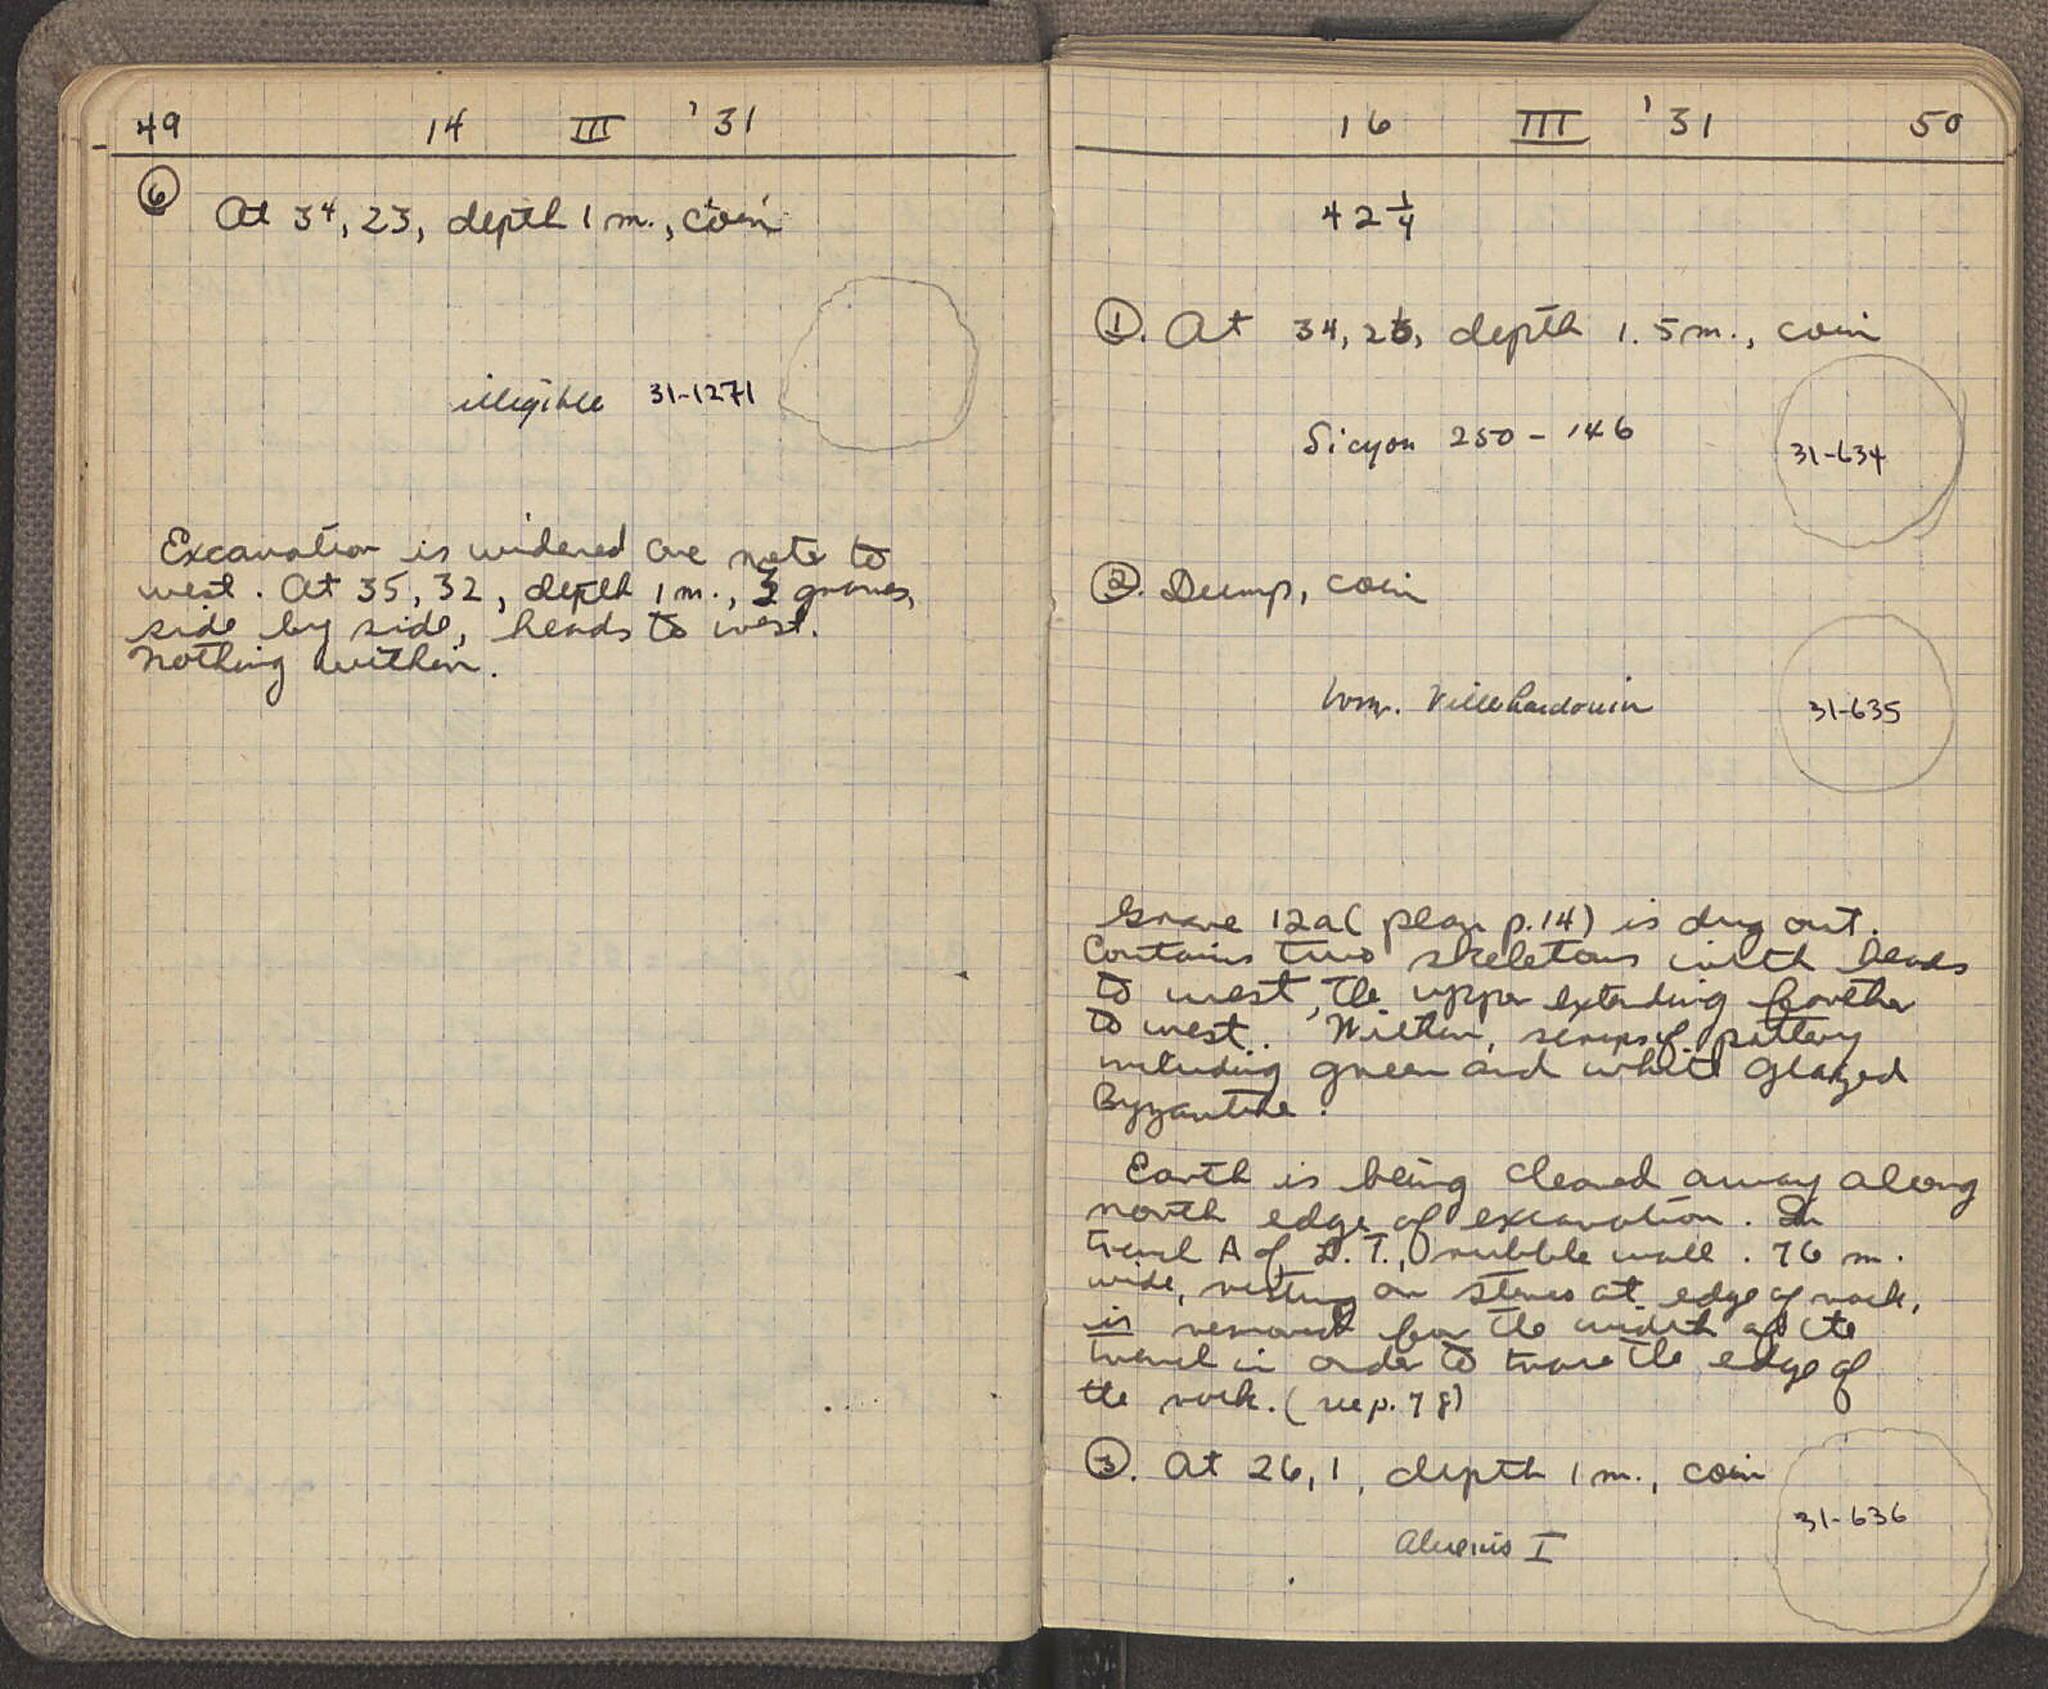 49 14 III '31
6 At 34, 23, depth 1 m., coin
illegible 31-1271
Excavation is widened one meter to
west. At 35, 32, depth 1 m., graves,
side by side, heads to west.
Nothing within.
16 III '31 50
42 1/4
1. At 34, 26, depth 1.5 m., coin
Sicyon 250 - 146
31-634
2. Dump, coin
Wm. Villehardouin
31-635
Grave 12a (plan p. 14) is dug out.
Contains two skeletons with heads
to west, the upper extending farther
to west. Within, scraps of pottery
including green and white glazed
Byzantine.
Earth is being cleared away along
north edge of excavation. In
trench A of D. T., rubble wall .76 m.
wide, resting on stones at edge of rock,
is removed for the width of the
trench in order to trace the edge of
the rock. (see p. 78)
3. At 26, 1, depth 1 m., coin
31-636
Alexius I